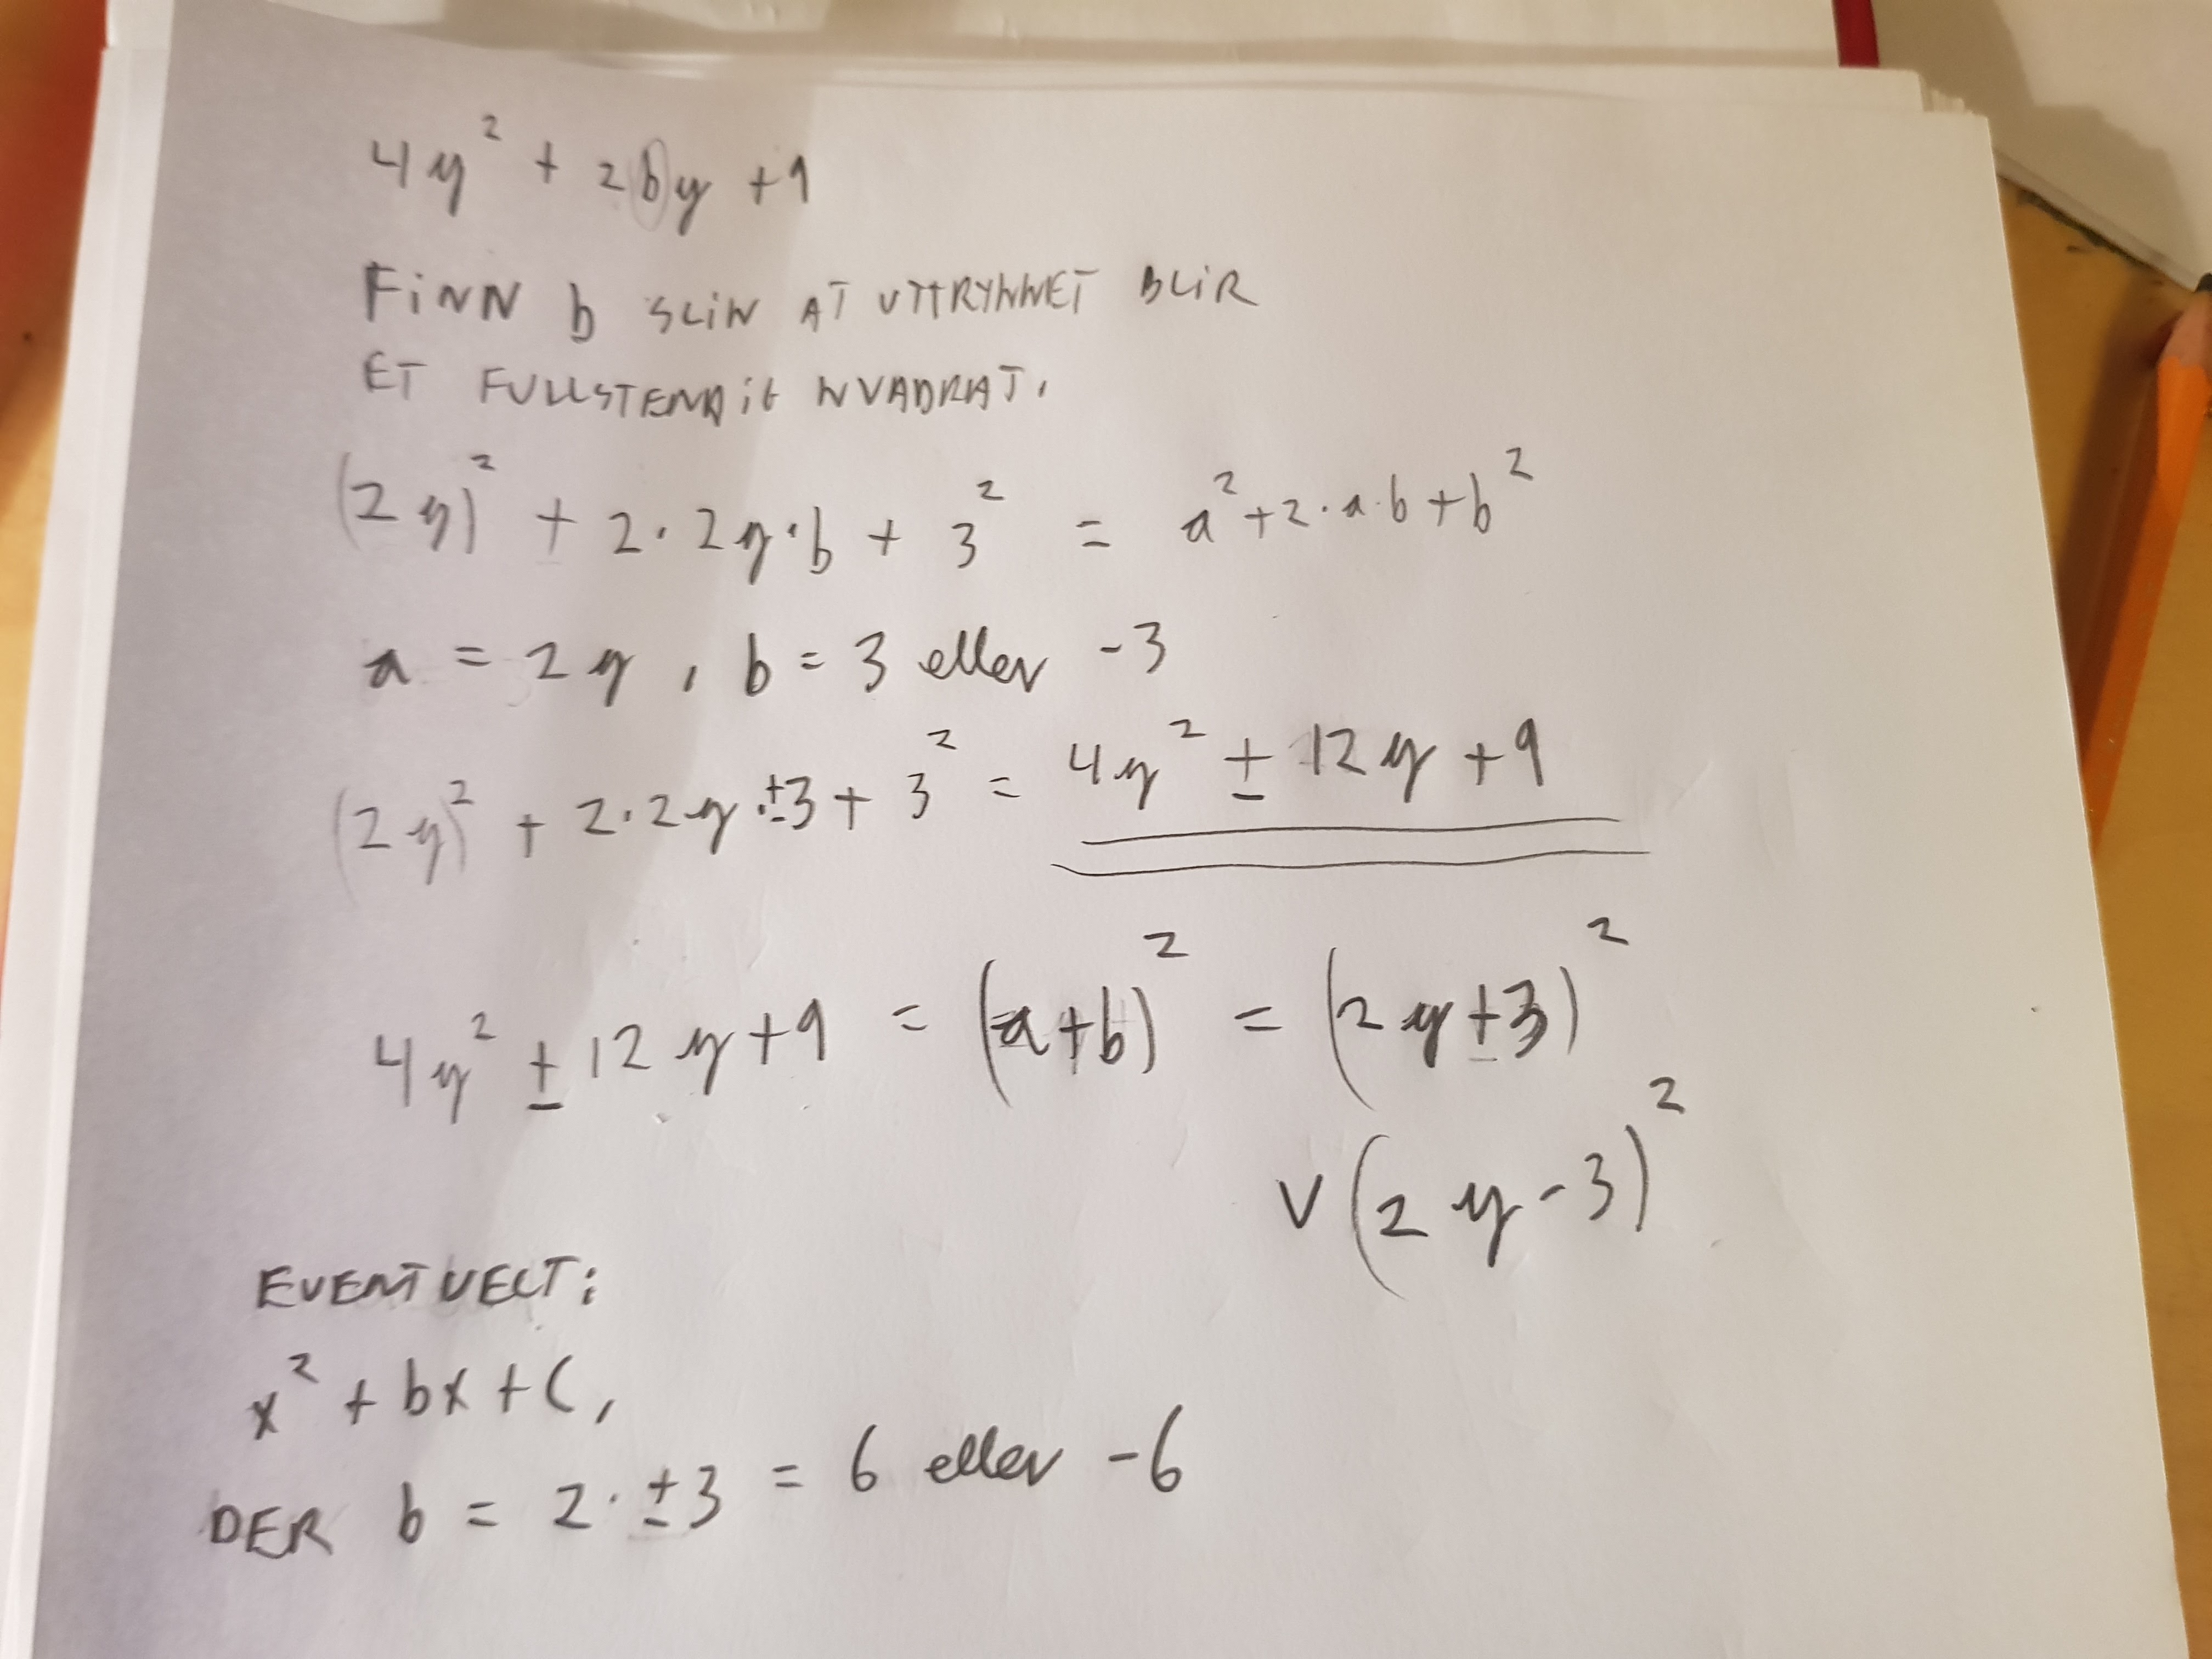 4y² + 2by + 9
FiNN b SLIK AT UTTRYKKET BLIR
ET FULLSTENDIG KVADRAT.
(2y)² + 2·2y·b + 3² = a² + 2·a·b + b²
a = 2y, b = 3 eller -3
(2y)² + 2·2y·±3 + 3² = 4y² ± 12y + 9
4y² ± 12y + 9 = (a+b)² = (2y±3)²
V (2y-3)²
EVENTUELT:
x² + bx + C,
DER b = 2·±3 = 6 eller -6